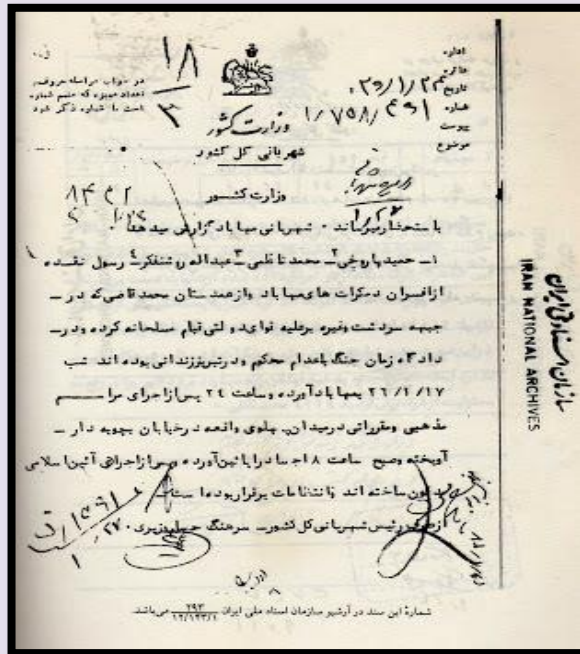 اداره
دایره
تاریخ
شماره ۱/۷۵۸/۴۶۱
پیوست
موضوع
۱۸
۳
در جواب مراسله حروف و
تعداد نمره که ضمیمه شماره
است با شماره ذکر شود
وزارت کشور
شهربانی کل کشور
وزارت کشور
باستحضار میرساند . شهربانی مهاباد گزارش میدهد
۱ـ حمید مازوجی ۲ـ محمد ناظمی ۳ـ عبداله روشنفکر ۴ـ رسول نقده
از افسران دمکرات های مهاباد و از همدستان محمد قاضی که در ـ
جبهه سردشت و غیره بر علیه قوای دولتی قیام مسلحانه کرده و در ـ
دادگاه زمان جنگ باعدام محکوم و در تبریز زندانی بوده اند شب
۲۶/۲/۱۷ بمهاباد آورده و ساعت ۲۴ پس از اجرای مراسم
مذهبی و مقرراتی در میدان پهلوی واقعه در خیابان بچوبه دار ـ
آویخته و صبح ساعت ۸ اجساد را پائین آورده و پس از اجرای آئین اسلامی
مدفون ساخته اند و انتظامات برقرار بوده است ـ
از طرف رئیس شهربانی کل کشور ـ سرهنگ
شمارهٔ این سند در آرشیو سازمان اسناد ملی ایران ۲۹۳ می‌باشد.
سازمان اسناد ملی ایران
IRAN NATIONAL ARCHIVES